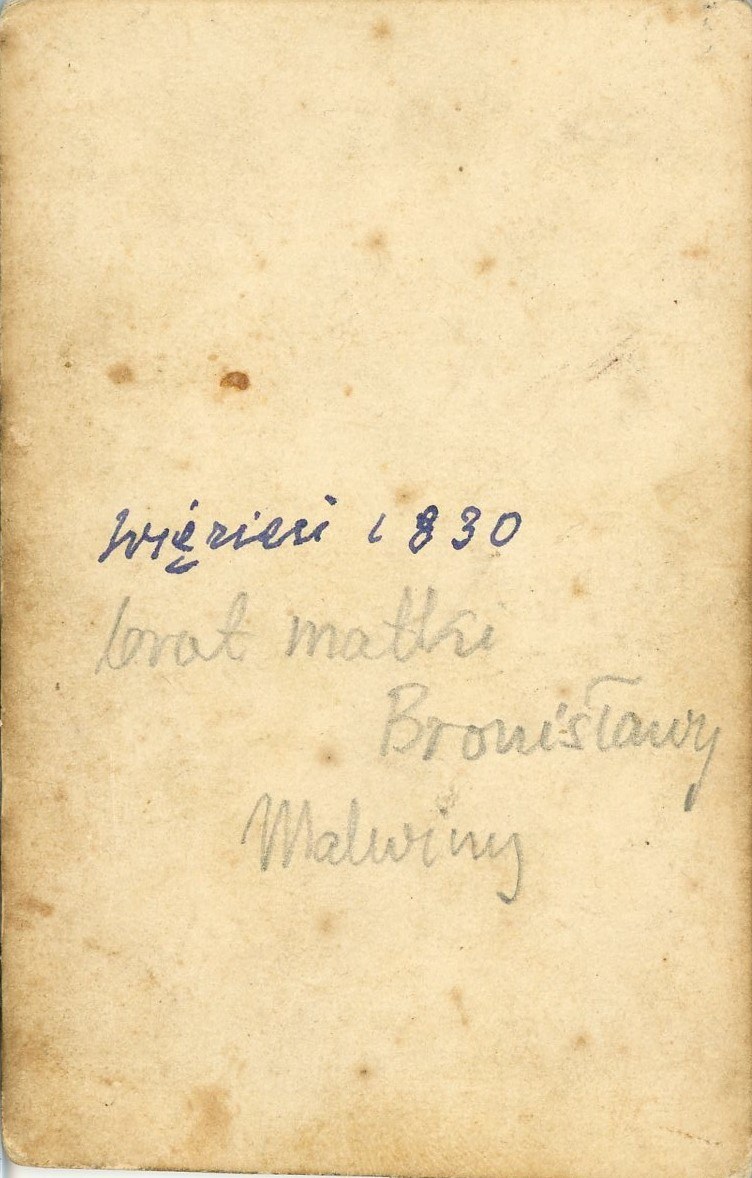 więzień 1830
brat matki
Bronisławy
Malwiny